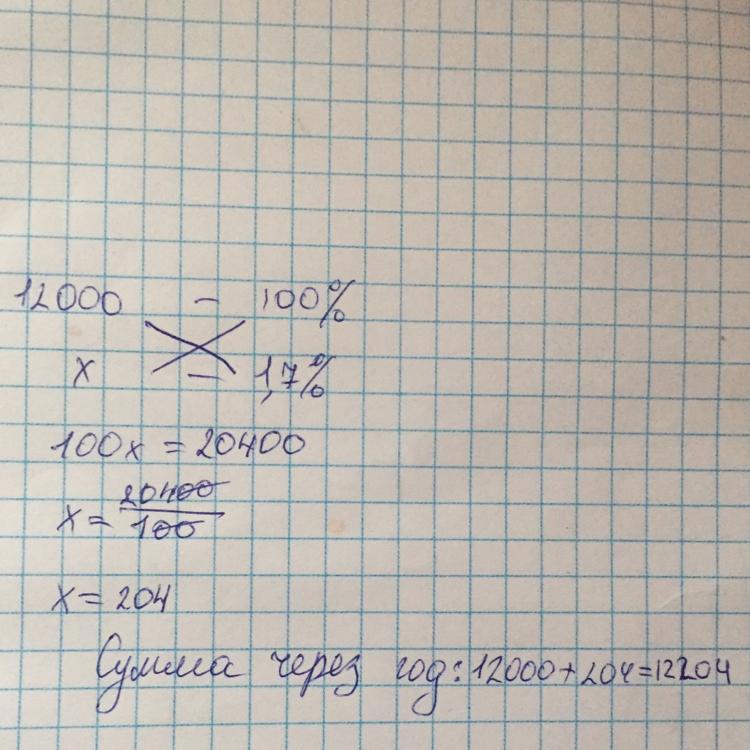 12000 – 100%
x – 1,7%
100x = 20400
x = 20400/100
x = 204
Сумма через год: 12000+204=12204